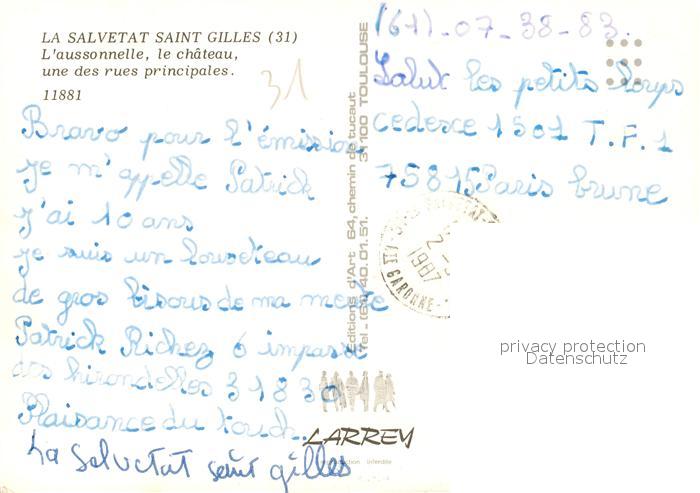 LA SALVETAT SAINT GILLES (31)
L'aussonnelle, le château,
une des rues principales.
11881
31
Bravo pour l'émission
je m'appelle Patrick
j'ai 10 ans
je suis un louveteau
de gros bisous de ma meute
Patrick Richez 6 impasse
des hirondelles 31830
Plaisance du touch.
La Salvetat saint gilles
Editions d'Art 64, chemin de tucaut 31100 TOULOUSE
Tel - (61) 40.01.51.
(61)-07-38-83.
Salut les petits loups
cedesce 1501 T.F.1
75815 Paris brune
2
1987
HTE GARONNE
LARREY
interdite
privacy protection
Datenschutz